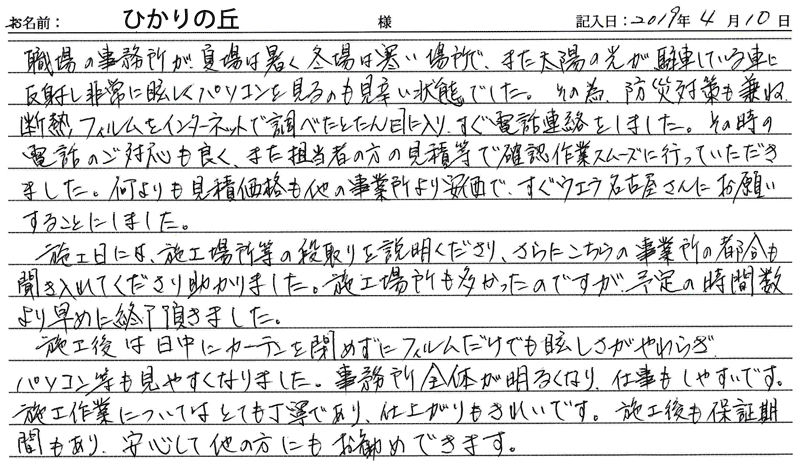 お名前： ひかりの丘 様 記入日：2019年 4月 10日
職場の事務所が、夏場は暑く冬場は寒い場所で、また太陽の光が駐車している車に
反射し非常に眩しくパソコンを見るのも見辛い状態でした。その為、防災対策も兼ね、
断熱フィルムをインターネットで調べたとたん目に入り、すぐ電話連絡をしました。その時の
電話のご対応も良く、また担当者の方の見積等で確認作業スムーズに行っていただき
ました。何よりも見積価格も他の事業所より安価で、すぐウエラ名古屋さんにお願い
することにしました。
施工日には、施工場所等の段取りを説明くださり、さらにこちらの事業所の都合も
聞き入れてくださり助かりました。施工場所も多かったのですが、予定の時間数
より早めに終了頂きました。
施工後は日中にカーテンを閉めずにフィルムだけでも眩しさがやわらぎ、
パソコン等も見やすくなりました。事務所全体が明るくなり、仕事もしやすいです。
施工作業についてはとても丁寧であり、仕上がりもきれいです。施工後も保証期
間もあり、安心して他の方にもお勧めできます。